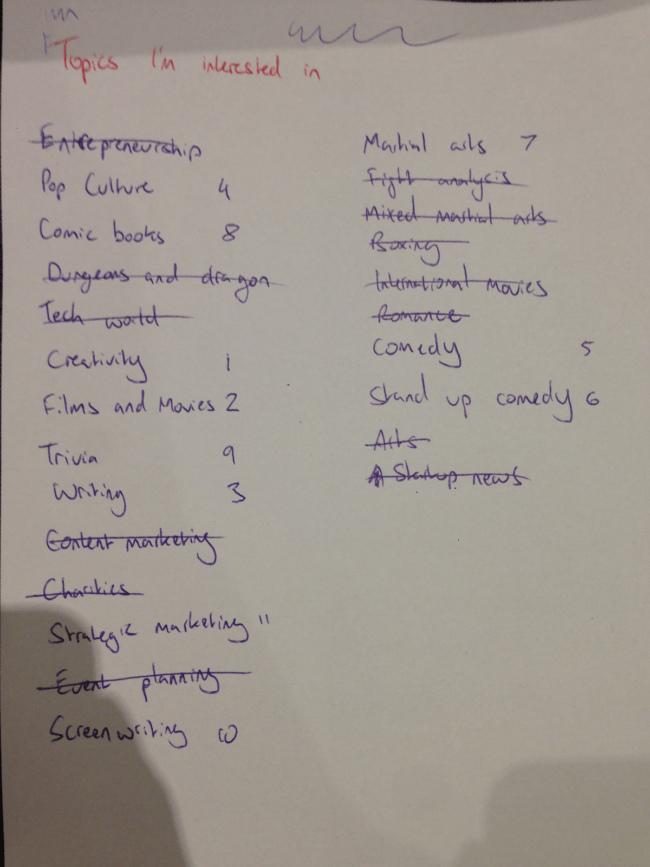 Topics I'm interested in
Entrepreneurship
Pop Culture 4
Comic books 8
Dungeons and dragon
Tech world
Creativity 1
Films and Movies 2
Trivia 9
Writing 3
Content marketing
Charities
Strategic marketing 11
Event planning
Screenwriting 10
Martial arts 7
Fight analysis
Mixed martial arts
Boxing
International Movies
Romance
Comedy 5
Stand up comedy 6
Arts
Startup news